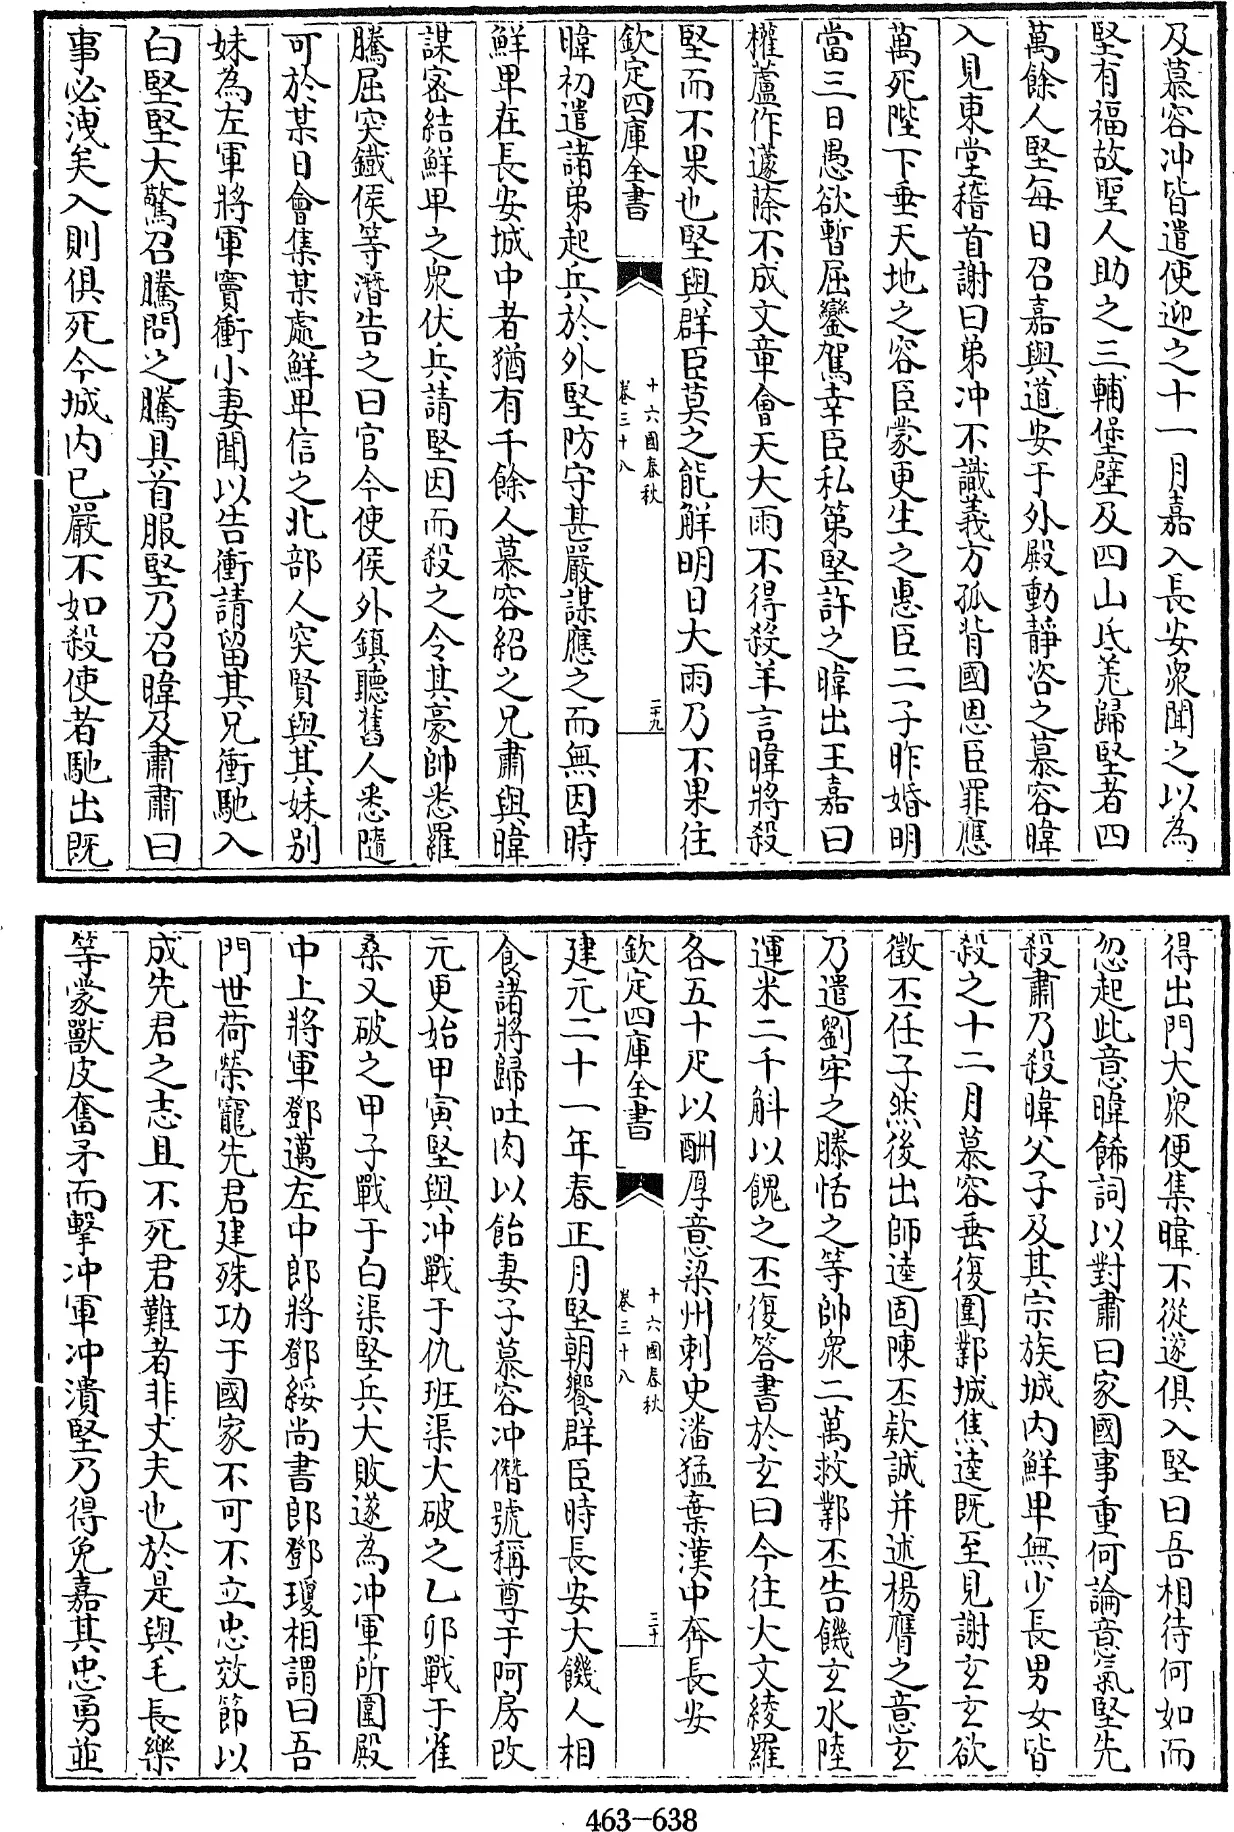 及慕容冲皆遣使迎之十一月嘉入長安衆聞之以為
堅有福故聖人助之三輔堡壁及四山氐羌歸堅者四
萬餘人堅每日召嘉與道安于外殿動靜咨之慕容暐
入見東堂稽首謝曰弟冲不識義方孤背國恩臣罪應
萬死陛下垂天地之容臣蒙更生之惠臣二子昨婚明
當三日愚欲暫屈鑾駕幸臣私第堅許之暐出王嘉曰
權蘆作蘧蒢不成文章會天大雨不得殺羊言暐將殺
堅而不果也堅與群臣莫之能解明日大雨乃不果往
欽定四庫全書
十六國春秋
卷三十八
二十九
暐初遣諸弟起兵於外堅防守甚嚴謀應之而無因時
鮮卑在長安城中者猶有千餘人慕容紹之兄肅與暐
謀宻結鮮卑之衆伏兵請堅因而殺之令其豪帥悉羅
騰屈突鐵侯等潛告之曰官今使侯外鎮聽舊人悉隨
可於某日會集某處鮮卑信之北部人突賢與其妹別
妹為左軍將軍竇衝小妻聞以告衝請留其兄衝馳入
白堅堅大驚召騰問之騰具首服堅乃召暐及肅肅曰
事必洩矣入則俱死今城内已嚴不如殺使者馳出既
得出門大衆便集暐不從遂俱入堅曰吾相待何如而
忽起此意暐餙詞以對肅曰家國事重何論意氣堅先
殺肅乃殺暐父子及其宗族城内鮮卑無少長男女皆
殺之十二月慕容垂復圍鄴城焦逵既至見謝玄玄欲
徵丕任子然後出師逵固陳丕欵誠并述楊膺之意玄
乃遣劉牢之滕恬之等帥衆二萬救鄴丕告饑玄水陸
運米二千斛以餽之丕復答書於玄曰今往大文綾羅
各五十疋以酬厚意梁州刺史潘猛棄漢中奔長安
欽定四庫全書
十六國春秋
卷三十八
三十
建元二十一年春正月堅朝饗群臣時長安大饑人相
食諸將歸吐肉以飴妻子慕容冲僭號稱尊于阿房改
元更始甲寅堅與冲戰于仇班渠大破之乙卯戰于雀
桑又破之甲子戰于白渠堅兵大敗遂為冲軍所圍殿
中上將軍鄧邁左中郎將鄧綏尚書郎鄧瓊相謂曰吾
門世荷榮寵先君建殊功于國家不可不立忠效節以
成先君之志且不死君難者非丈夫也於是與毛長樂
等蒙獸皮奮矛而擊冲軍冲潰堅乃得免嘉其忠勇並
463-638